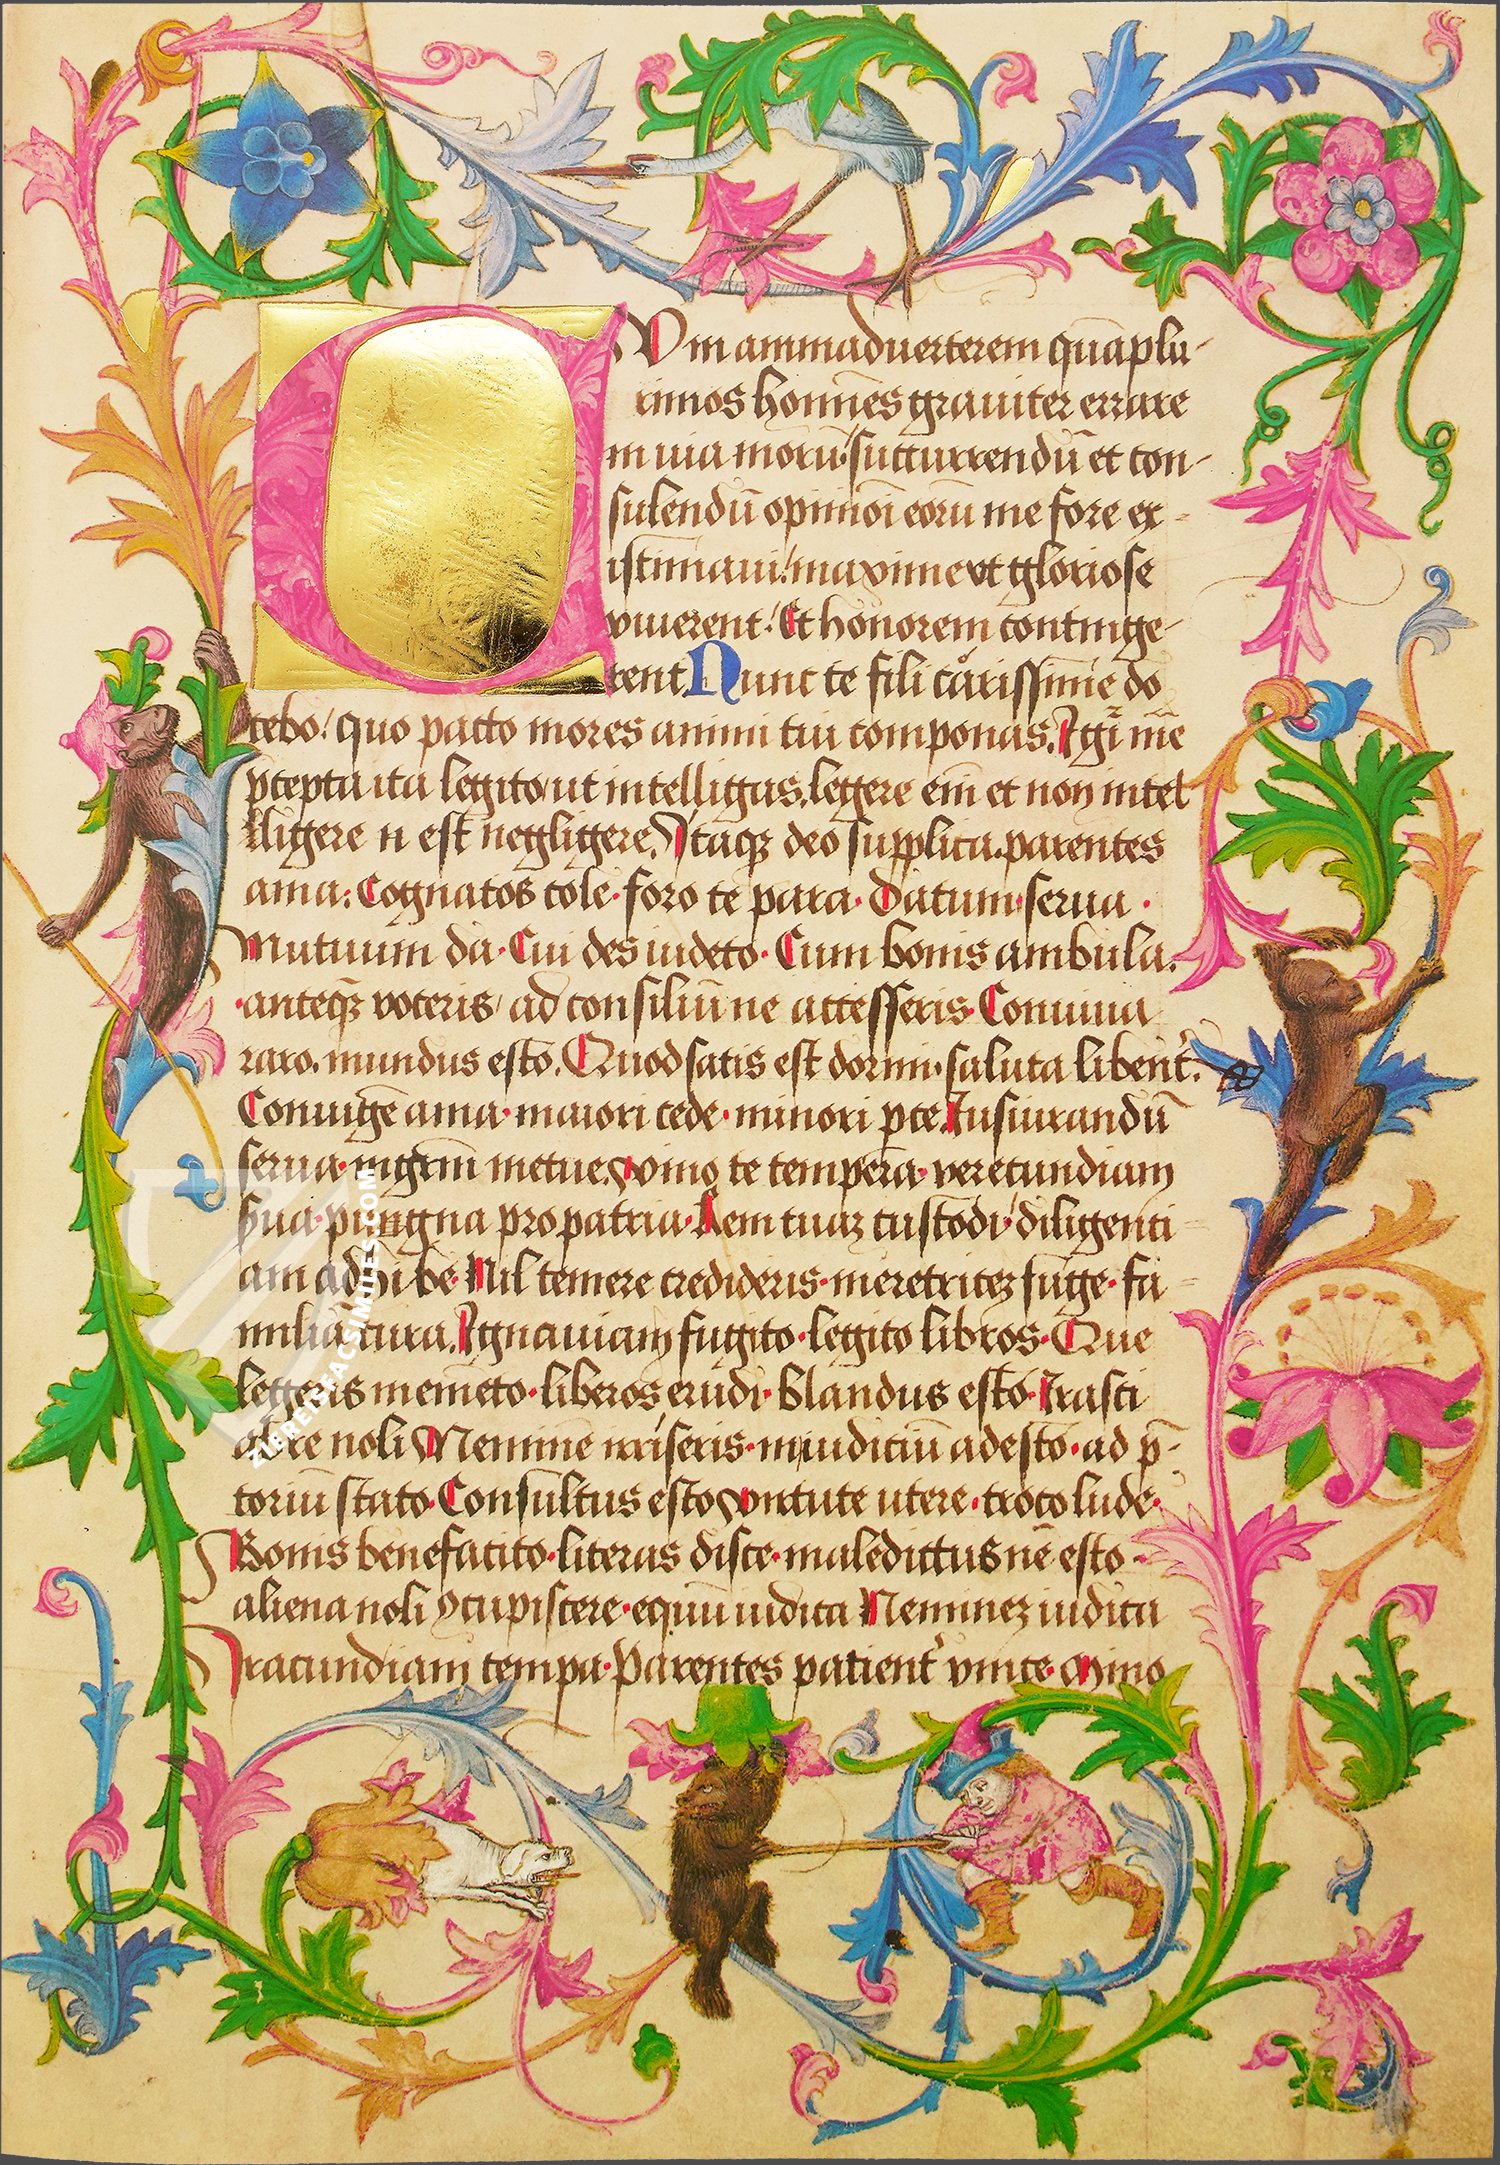 CUm animaduerterem quāplu-
rimos homīes grauiter errare
in uia morū succurrendū et con-
sulendū opinioī eorū me fore ex-
istimaui/ maxime vt gloriose
viuerent/ Et honorem continge-
rent. Nunc te fili carissime do
cebo/ quo pacto mores animi tui componas. Igī mē
p̄cepta ita legito/ ut intelligas. legere eīn et non intel
lligere n̄ est negligere. Itaqꝫ deo supplica. parentes
ama: Cognatos cole· foro te para· Datum serua ·
Mutuum da· Cui des uideto· Cum bonis ambula.
·anteqꝫ voceris/ ad consiliū ne accesseris· Conuiua
raro. mundus esto. Quod satis est dormi· saluta libent̄.
Coniugē ama· maiori cede· minori p̄ce. Iusiurandū
serua· metue. vino te tempera· verecundiam
pro patria· Rem tuaꝫ custodi/ diligenti-
am adhibe· Nil temere credideris· meretriceꝫ fuge· fa-
milia cura. Ignauiam fugito· legito libros· Que
legeris memēto· liberos erudi· blandus esto· Irasci
ab re noli Neminē irriseris· in iudiciū adesto· ad p̄-
toriū stato· Consultus esto virtute utere· troco lude·
Bonis benefacito· literas disce· maledictus nē esto -
aliena noli ꝯcupiscere· equū iudica Nemineꝫ iudica
Iracundiam tempa· Parentes patient̄ vince· Mino
ZIEREIS FACSIMILES.COM